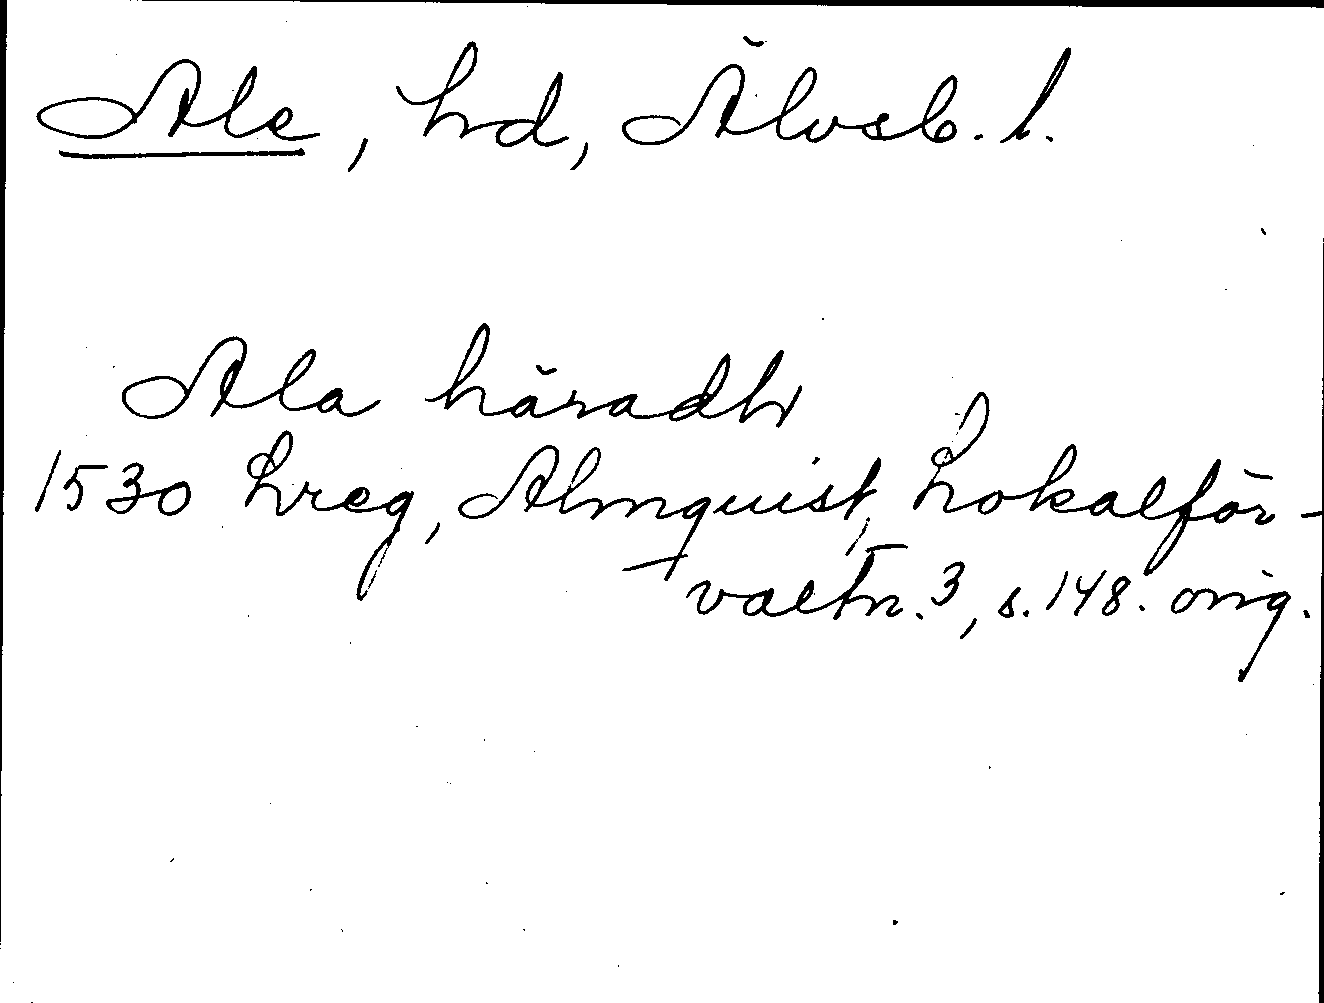 Ale, hd, Älvsb. l.
Ala häradh
1530 Lreg, Almquist, Lokalför-
valtn. 3, s. 148. orig.